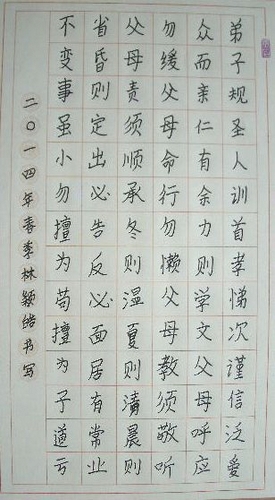 弟子规圣人训首孝悌次谨信泛爱
众而亲仁有余力则学文父母呼应
勿缓父母命行勿懒父母教须敬听
父母责须顺承冬则温夏则清晨则
省昏则定出必告反必面居有常业
不变事虽小勿擅为苟擅为子道亏
二〇一四年春李林颖皓书写